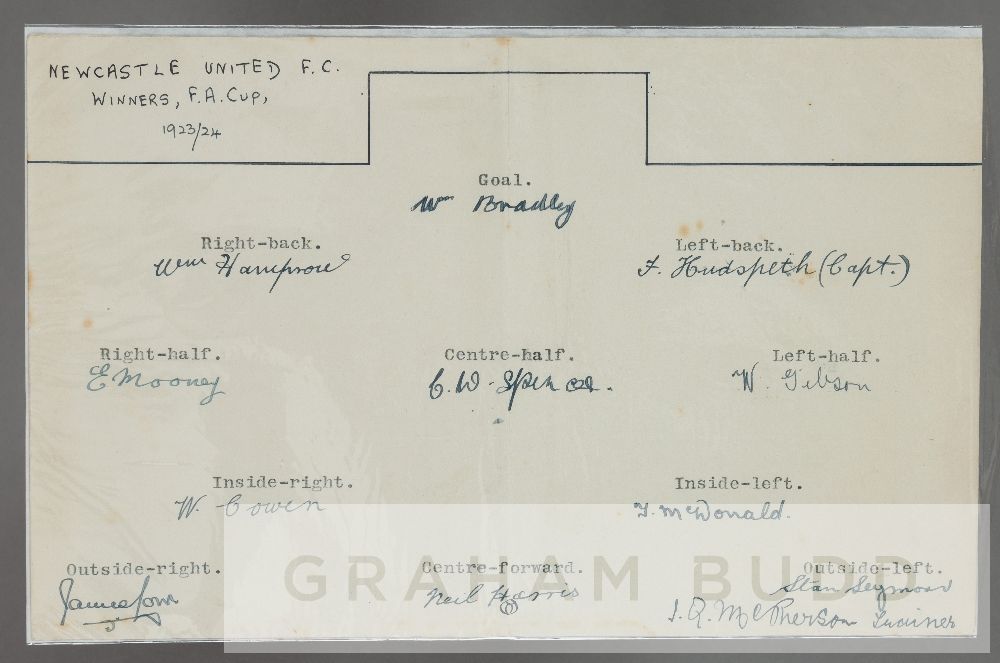 NEWCASTLE UNITED F.C.
WINNERS, F.A. CUP,
1923/24
Goal.
Wm Bradley
Right-back. Left-back.
Wm Hampson F. Hudspeth (Capt.)
Right-half. Centre-half. Left-half.
E Mooney C. W. Spencer. W. Gibson
Inside-right. Inside-left.
W. Cowen T. McDonald.
Outside-right. Centre-forward. Outside-left.
James Low Neil Harris Stan Seymour
J. Q. McPherson Trainer
GRAHAM BUDD